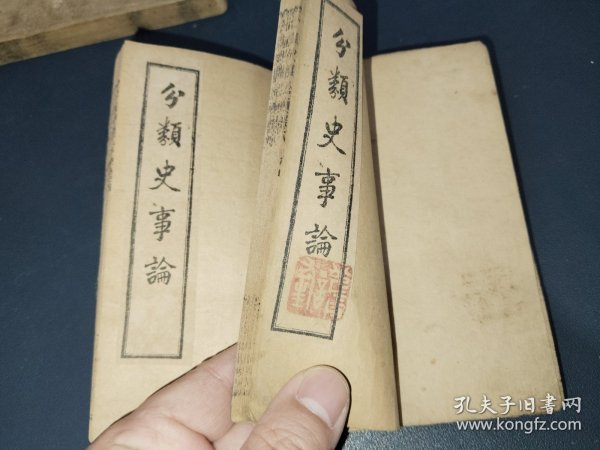 分類史事論
分類史事論
孔夫子旧書网
book.kongfz.com